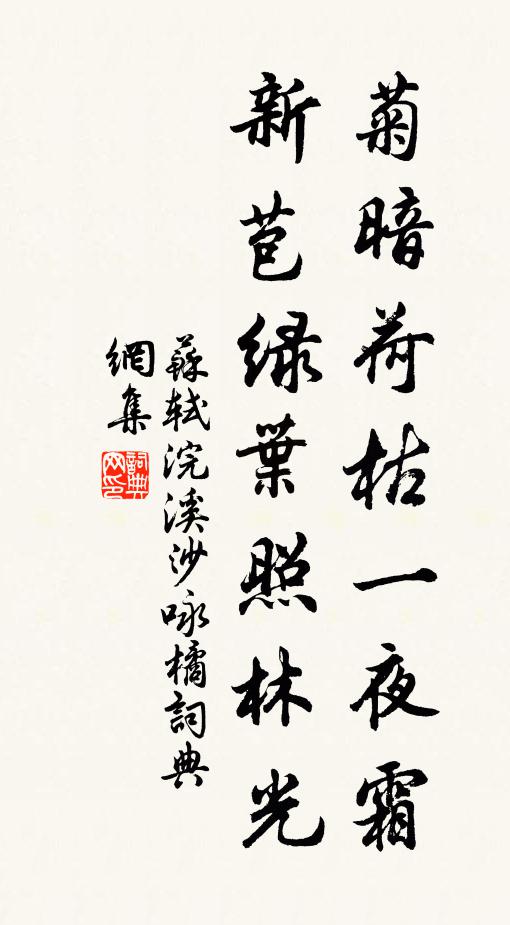 菊暗荷枯一夜霜
新苞綠葉照林光
蘇軾浣溪沙咏橘詞典
網集
詞典
网印